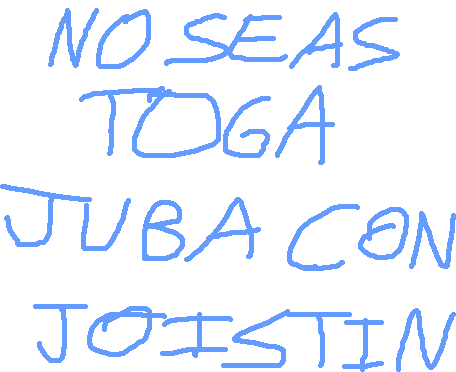 NO SEAS
TOGA
JUBA CON
JOISTIN